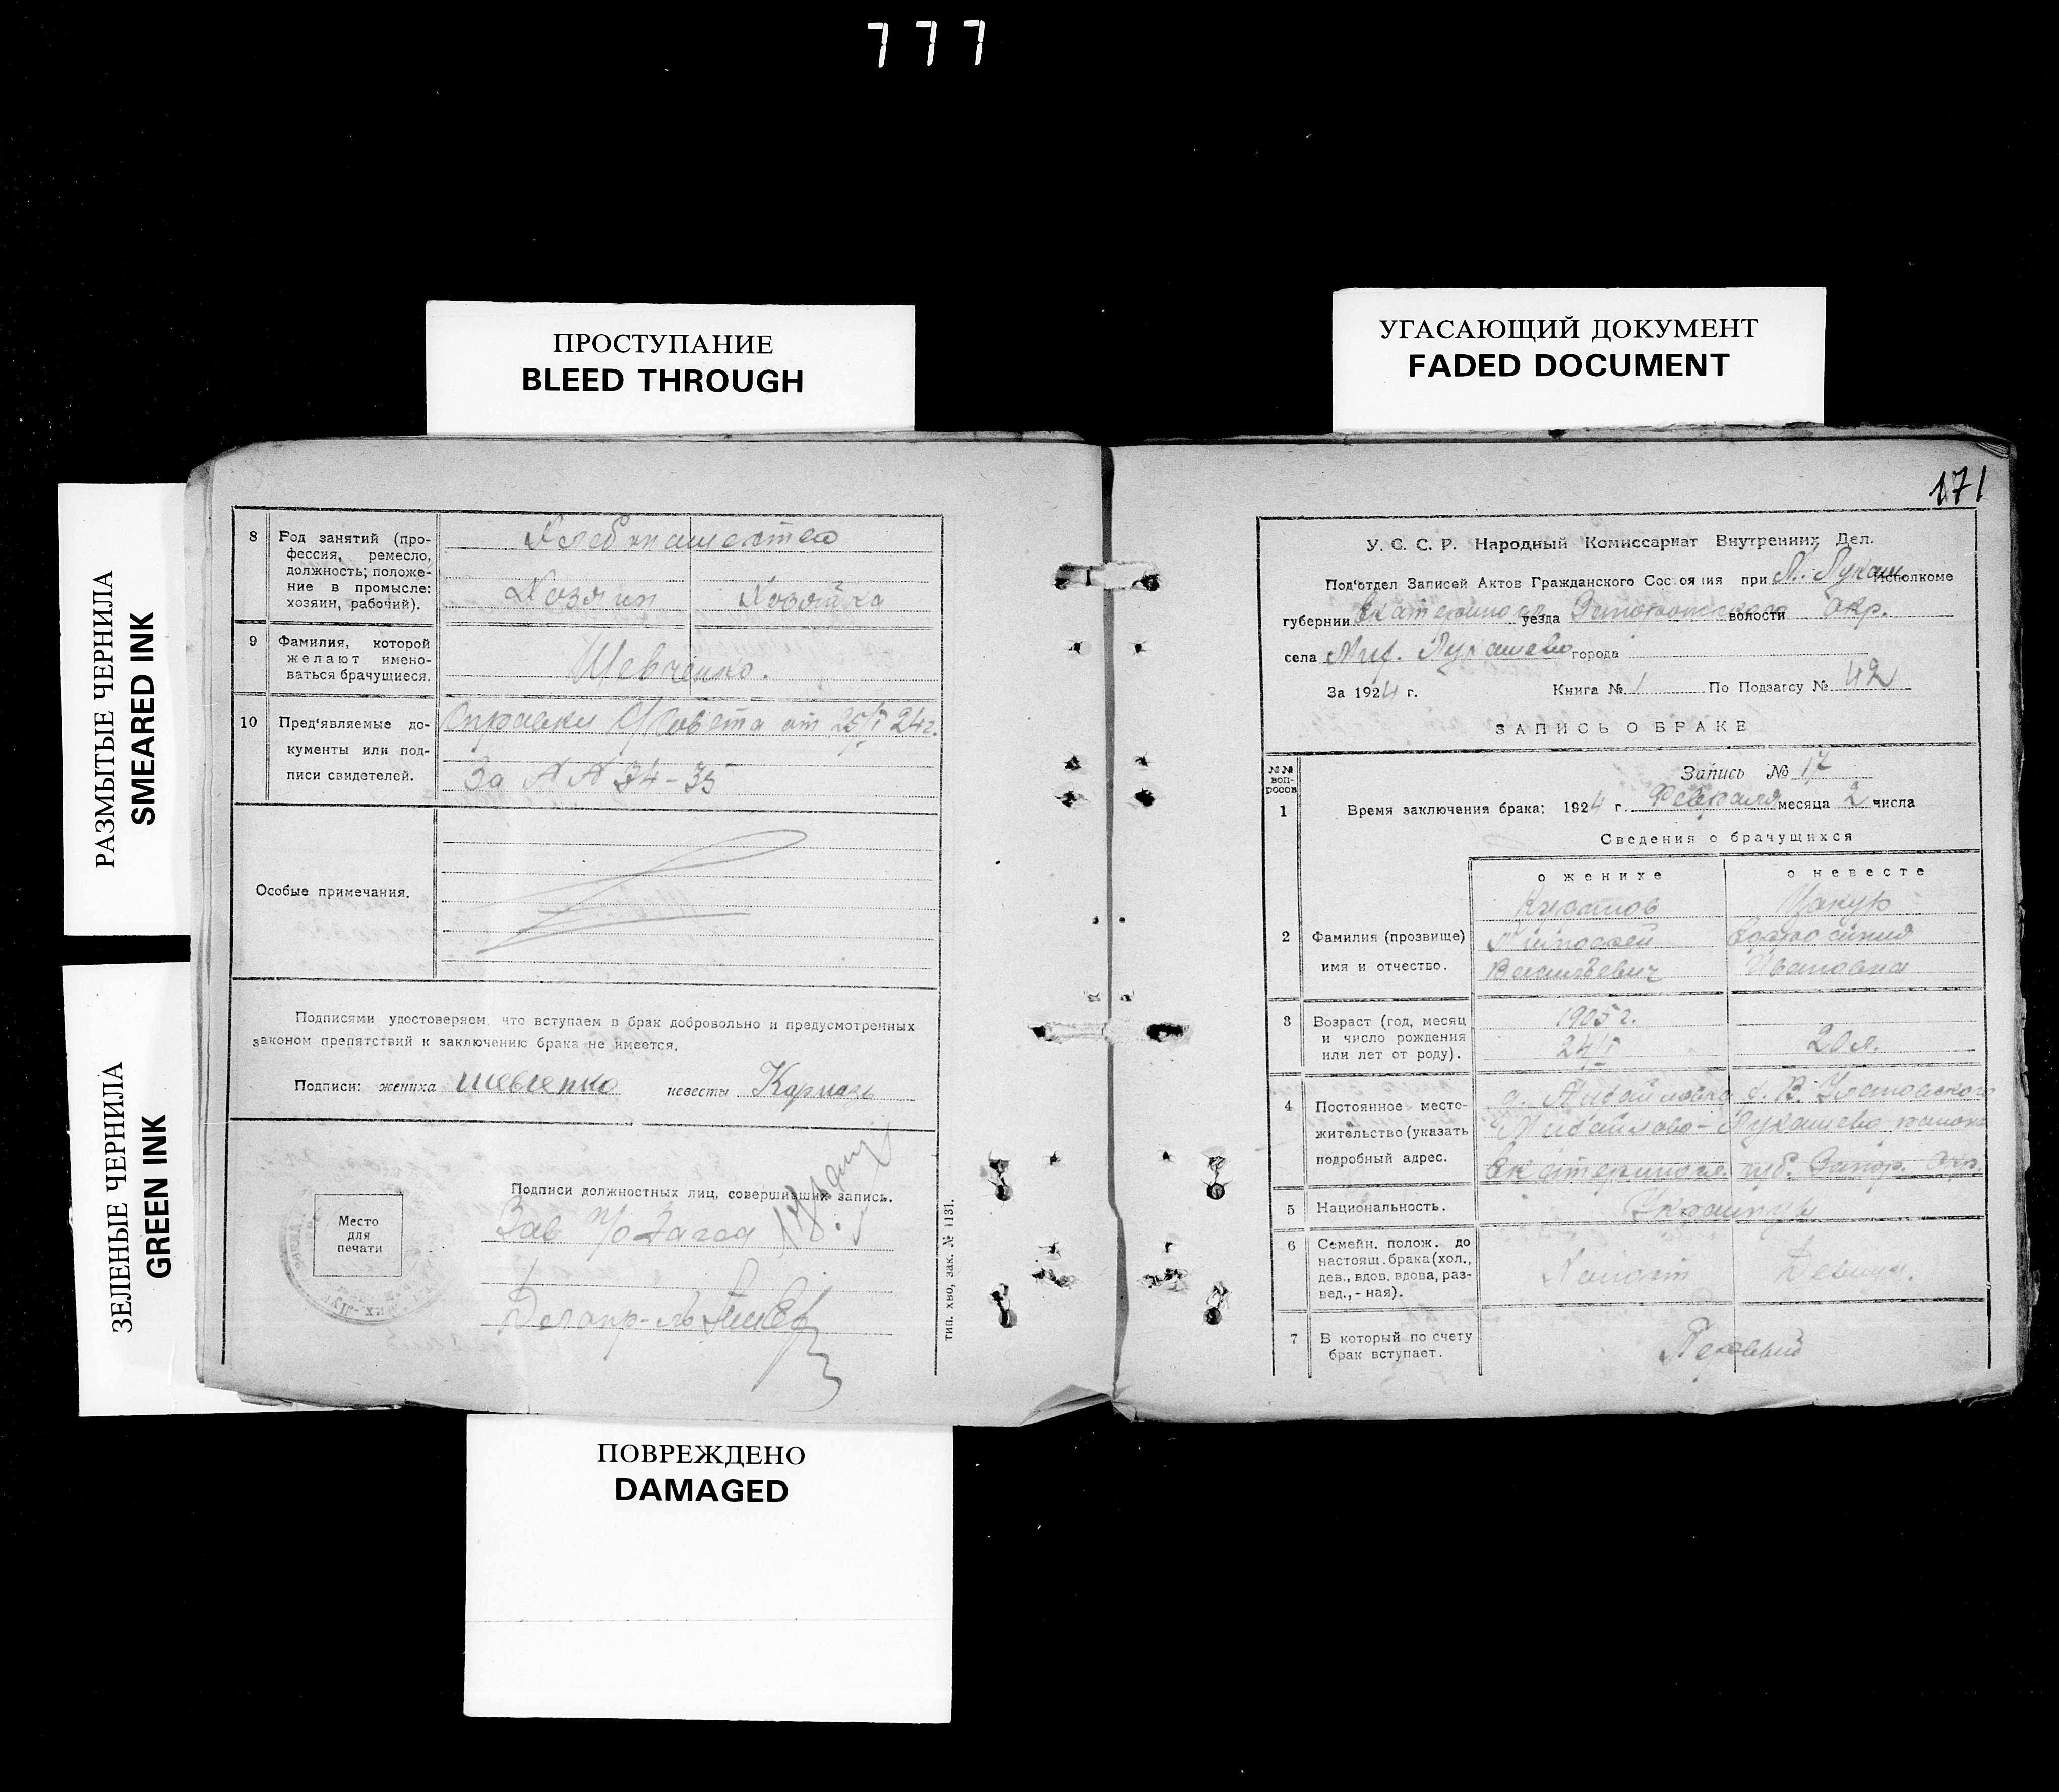 777
ПРОСТУПАНИЕ
BLEED THROUGH
УГАСАЮЩИЙ ДОКУМЕНТ
FADED DOCUMENT
РАЗМЫТЫЕ ЧЕРНИЛА
SMEARED INK
ЗЕЛЕНЫЕ ЧЕРНИЛА
GREEN INK
8 Род занятий (про-
фессия, ремесло,
должность; положе-
ние в промысле:
хозяин, рабочий).
Хлебопашество
Хозяин Хозяйка
9 Фамилия, которой
желают имено-
ваться брачущиеся.
Шевченко.
10 Пред'являемые до-
кументы или под-
писи свидетелей.
Справки С/Совета от 25/I 24 г.
За № № 34-35
Особые примечания.
Подписями удостоверяем, что вступаем в брак добровольно и предусмотренных
законом препятствий к заключению брака не имеется.
Подписи: жениха Шевченко невесты
Подписи должностных лиц, совершивших запись.
Зав п/о Загса
Делопр-ль
Место
для
печати
тип. хво, зак. № 1131.
171
У. С. С. Р. Народный Комиссариат Внутренних Дел.
Под'отдел Записей Актов Гражданского Состояния при М. Лукаш. Исполкоме
губернии Екатеринослав уезда Запорожского волости Окр.
села Мих. Лукашево города
За 1924 г. Книга № 1 По Подзагсу № 42
ЗАПИСЬ О БРАКЕ
№№
воп-
росов
Запись № 17
1 Время заключения брака: 1924 г. Февраля месяца 2 числа
Сведения о брачущихся
о женихе о невесте
2 Фамилия (прозвище)
имя и отчество.
Тимофей
Васильевич Ивановна
3 Возраст (год, месяц
и число рождения
или лет от роду).
1905 г.
24/I 20 л.
4 Постоянное место-
жительство (указать
подробный адрес.
д. Михайловка
Михайлово-Лукашево района
Екатериносл. губ. Запор. Окр.
5 Национальность.
Украинцы
6 Семейн. полож. до
настоящ. брака (хол.,
дев., вдов, вдова, раз-
вед., - ная).
Холост Девица.
7 В который по счету
брак вступает.
Первый
ПОВРЕЖДЕНО
DAMAGED